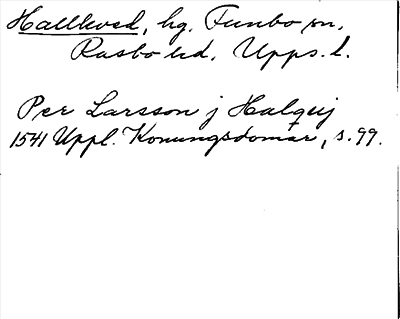 Hallkved, hg. Funbo sn.
Rasbo hd. Upps. l.
Per Larsson j Halquij
1541 Uppl. Konungsdomar, s. 99.